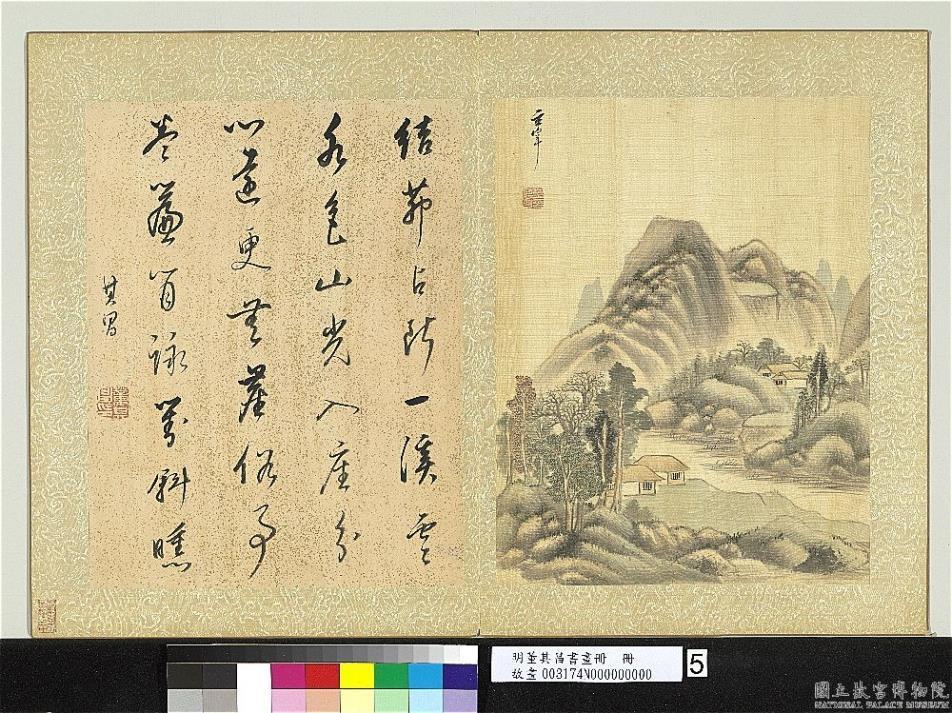 玄宰
結茆占斷一溪雲
水色山光入座分
心遠更無塵俗事
卷簾閒詠對斜曛
其昌
明董其昌書畫冊 冊
故畫003174N000000000
5
國立故宮博物院
NATIONAL PALACE MUSEUM